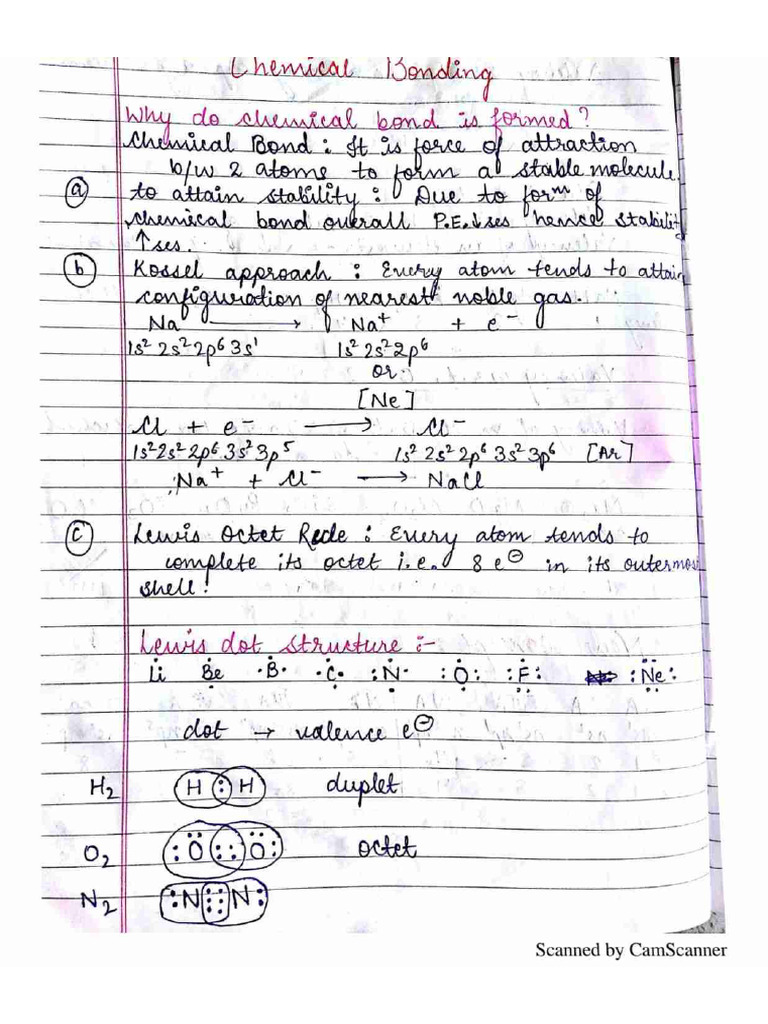 Chemical Bonding
Why do chemical bond is formed?
Chemical Bond : It is force of attraction
b/w 2 atoms to form a stable molecule
(a) to attain stability : Due to forⁿ of
chemical bond overall P.E.↓ses hence stabilit
↑ses.
(b) Kossel approach : Every atom tends to attain
configuration of nearest noble gas.
Na ⟶ Na⁺ + e⁻
1s² 2s² 2p⁶ 3s¹ 1s² 2s² 2p⁶
or
[Ne]
Cl + e⁻ ⟶ Cl⁻
1s² 2s² 2p⁶ 3s² 3p⁵ 1s² 2s² 2p⁶ 3s² 3p⁶ [Ar]
Na⁺ + Cl⁻ ⟶ NaCl
(c) Lewis Octet Rule : Every atom tends to
complete its octet i.e. 8 e⊖ in its outermos
shell.
Lewis dot structure :-
Li Be ·B· ·C· :N· :O: :F: :Ne:
dot → valence e⊖
H₂ H : H duplet
O₂ :O::O: octet
N₂ :N:::N:
Scanned by CamScanner